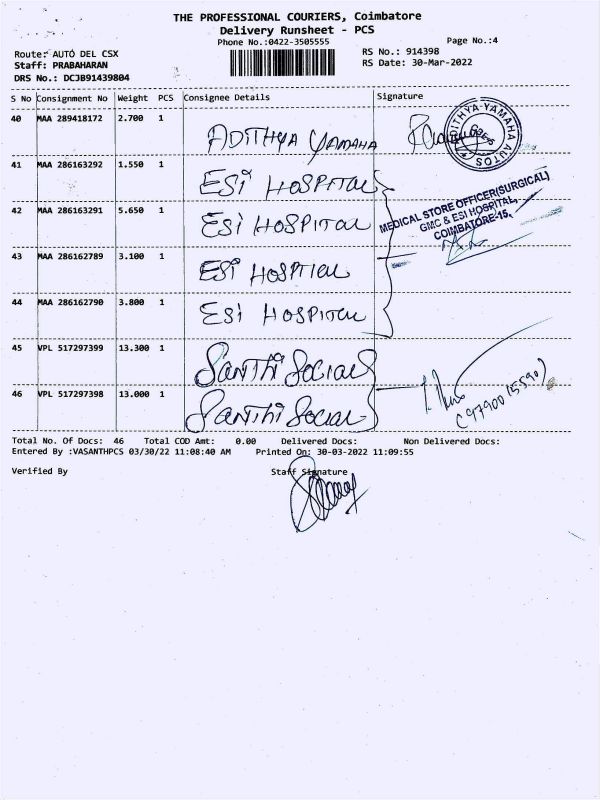 THE PROFESSIONAL COURIERS, Coimbatore
Delivery Runsheet - PCS
Phone No.:0422-3505555
Page No.:4
Route: AUTO DEL CSX
RS No.: 914398
Staff: PRABAHARAN
RS Date: 30-Mar-2022
DRS No.: DCJB91439804
S No Consignment No Weight PCS Consignee Details Signature
40 MAA 289418172 2.700 1 ADITHYA YAMAHA
ADITHYA YAMAHA AUTOS
41 MAA 286163292 1.550 1 ESI HOSPITAL
MEDICAL STORE OFFICER(SURGICAL)
GMC & ESI HOSPITAL,
COIMBATORE-15.
42 MAA 286163291 5.650 1 ESI HOSPITAL
43 MAA 286162789 3.100 1 ESI HOSPITAL
44 MAA 286162790 3.800 1 ESI HOSPITAL
45 VPL 517297399 13.300 1 SANTHI SOCIAL
46 VPL 517297398 13.000 1 SANTHI SOCIAL
Total No. Of Docs: 46 Total COD Amt: 0.00 Delivered Docs: Non Delivered Docs:
Entered By :VASANTHPCS 03/30/22 11:08:40 AM Printed On: 30-03-2022 11:09:55
Verified By Staff Signature